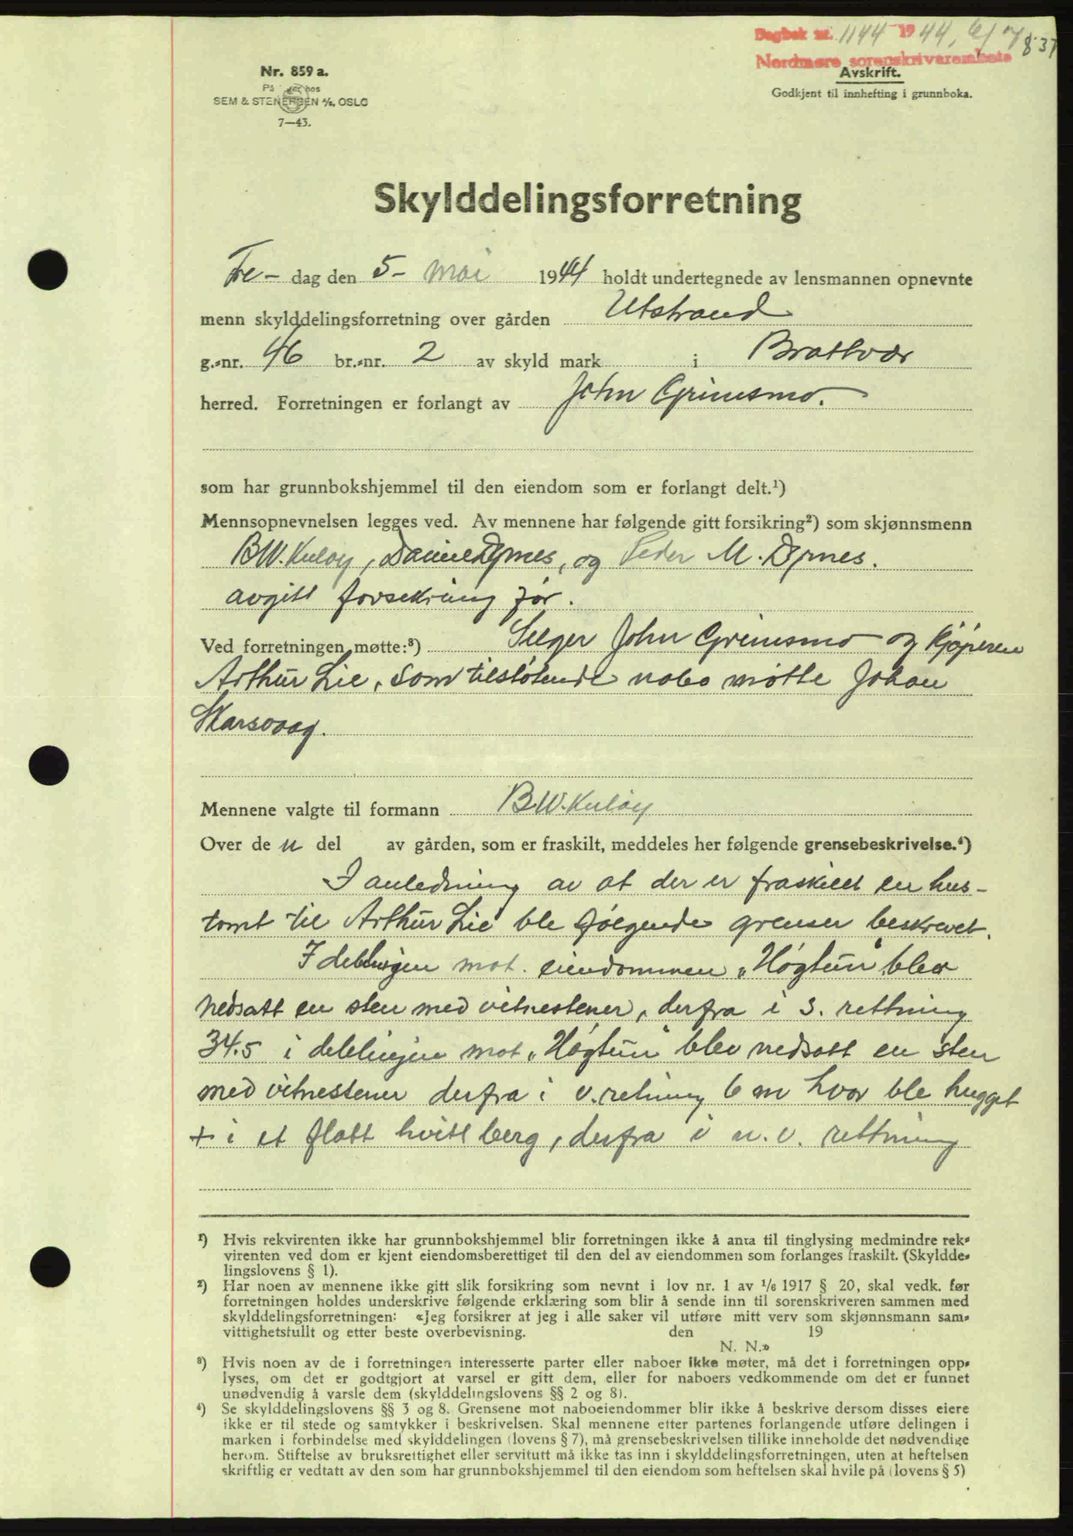 Dagbok nr. 1144 1944, 6/7
837
Nordmøre sorenskriverembete
Nr. 859 a.
På lager hos
SEM & STENERSEN A/S, OSLO
7—43.
Avskrift.
Godkjent til innhefting i grunnboka.
Skylddelingsforretning
Fre- dag den 5- mai 1944 holdt undertegnede av lensmannen opnevnte
menn skylddelingsforretning over gården Utstrand
g.-nr. 46 br.-nr. 2 av skyld mark i Brattvær
herred. Forretningen er forlangt av John Grimsmo.
som har grunnbokshjemmel til den eiendom som er forlangt delt.¹)
Mennsopnevnelsen legges ved. Av mennene har følgende gitt forsikring²) som skjønnsmenn
B.W. Kuløy, Daniel Dyrnes, og Peder M. Dyrnes.
avgitt forsekring før.
Ved forretningen møtte:³) Selger John Grimsmo og kjøperen
Arthur Lie, som tilstøtende nabo møtte Johan
Skarsvaag.
Mennene valgte til formann B.W. Kuløy
Over de n del av gården, som er fraskilt, meddeles her følgende grensebeskrivelse.⁴)
I anledning av at der er fraskilt en hus-
tomt til Arthur Lie ble følgende grenser beskrevet.
I delelingen mot. eiendommen „Høgtun" blev
nedsatt en sten med vitnestener, derfra i s. rettning
34.5 i delelinjen mot „Høgtun" blev nedsatt en sten
med vitnestener derfra i v. retning 6 m hvor ble hugget
+ i et flatt hvitt berg, derfra i n. v. rettning
¹) Hvis rekvirenten ikke har grunnbokshjemmel blir forretningen ikke å anta til tinglysing medmindre rek-
virenten ved dom er kjent eiendomsberettiget til den del av eiendommen som forlanges fraskilt. (Skyldde-
lingslovens § 1).
²) Har noen av mennene ikke gitt slik forsikring som nevnt i lov nr. 1 av 1/6 1917 § 20, skal vedk. før
forretningen holdes underskrive følgende erklæring som blir å sende inn til sorenskriveren sammen med
skylddelingsforretningen: «Jeg forsikrer at jeg i alle saker vil utføre mitt verv som skjønnsmann sam-
vittighetsfullt og etter beste overbevisning. den 19
N. N.»
³) Hvis noen av de i forretningen interesserte parter eller naboer ikke møter, må det i forretningen opp-
lyses, om det er godtgjort at varsel er gitt dem, eller for naboers vedkommende om det er funnet
unødvendig å varsle dem (skylddelingslovens §§ 2 og 8).
⁴) Se skylddelingslovens §§ 3 og 8. Grensene mot naboeiendommer blir ikke å beskrive dersom disses eiere
ikke er til stede og samtykker i beskrivelsen. Skal mennene etter partenes forlangende utføre delingen i
marken i forbindelse med skylddelingen (lovens § 7), må grensebeskrivelsen tillike inneholde det nødvendige
herom. Stiftelse av bruksrettighet eller servitutt må ikke tas inn i skylddelingsforretningen, uten at heftelsen
skriftlig er vedtatt av den som har grunnbokshjemmel til den eiendom som heftelsen skal hvile på (lovens § 5)